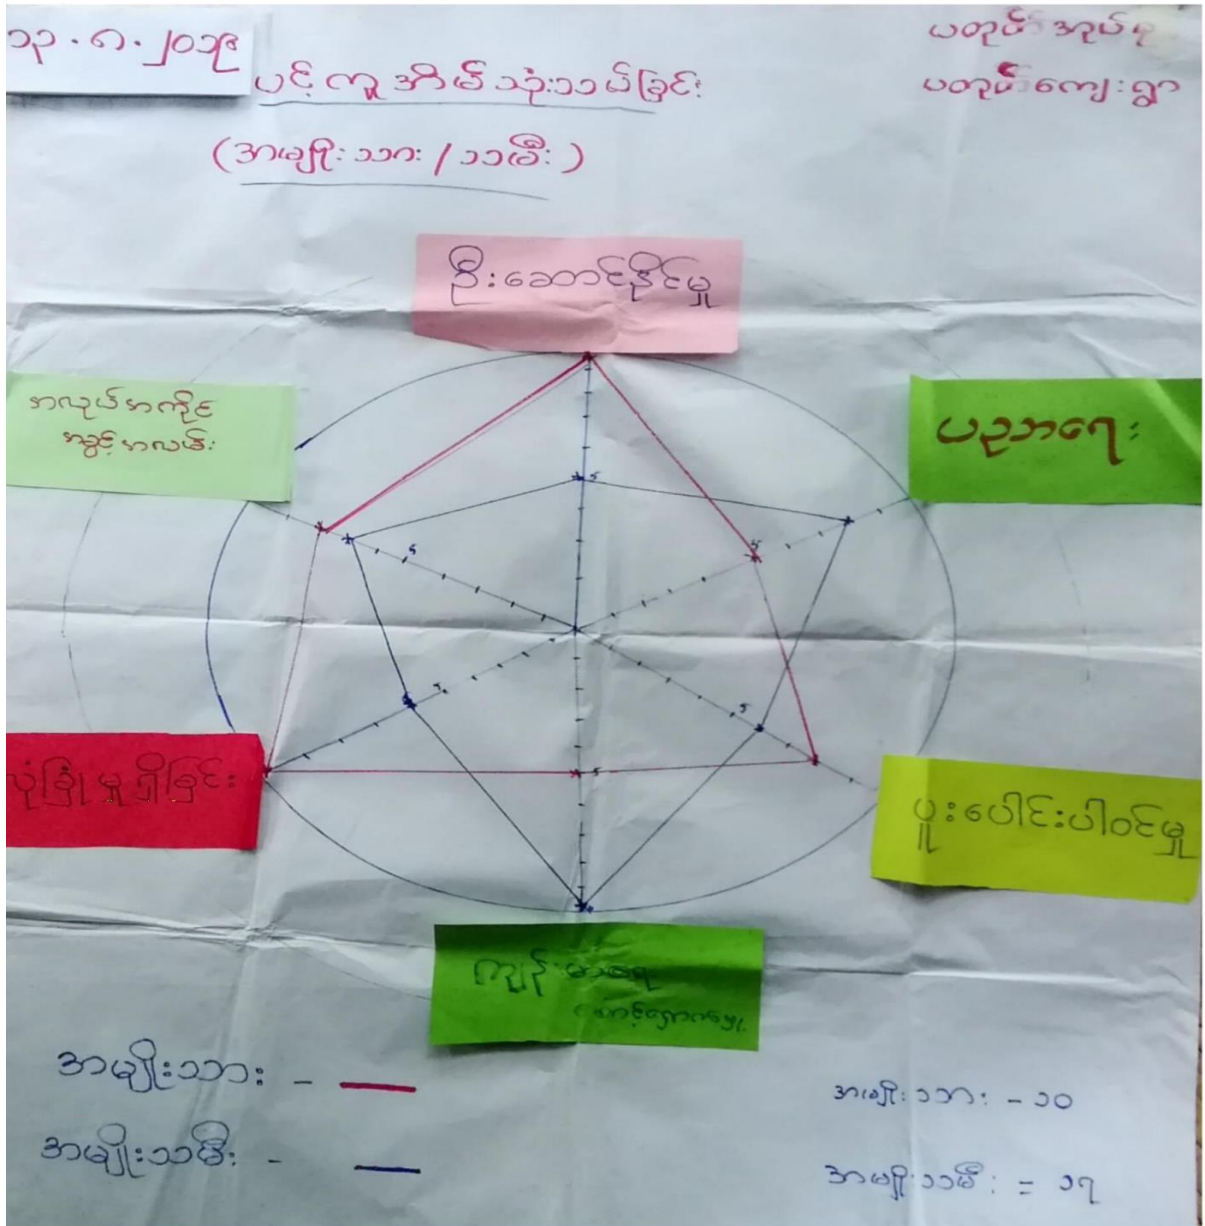 ၁၃.၈.၂၀၁၉
ပင့်ကူအိမ်သုံးသပ်ခြင်း
(အမျိုးသား / သမီး)
ပတုပ် အုပ်စု
ပတုပ် ကျေးရွာ
ဦးဆောင်နိုင်မှု
အလုပ်အကိုင်
အခွင့်အလမ်း
ပညာရေး
5
5
5
5
5
5
လုံခြုံမှုရှိခြင်း
ပူးပေါင်းပါဝင်မှု
ကျန်းမာရေး
စောင့်ရှောက်မှု
အမျိုးသား -
အမျိုးသမီး -
အမျိုးသား - ၁၀
အမျိုးသမီး = ၁၇